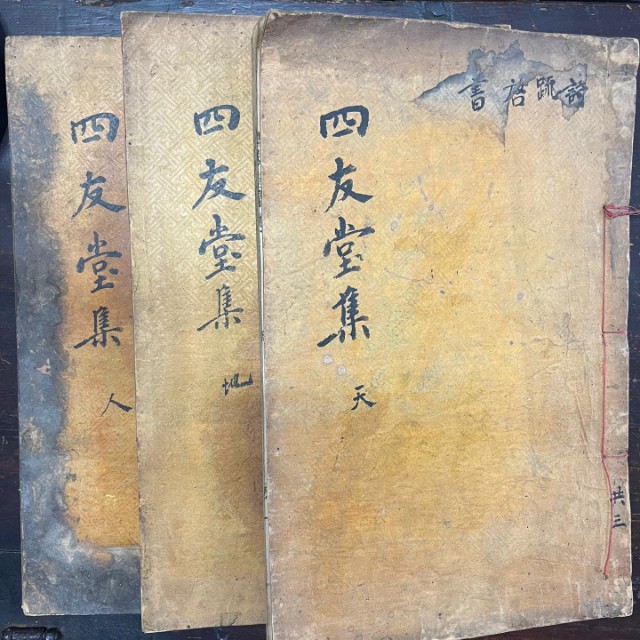 疏啓書
四友堂集
天
共三
四友堂集
地
四友堂集
人